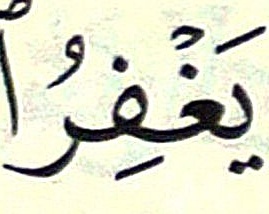 يَغْفِرُ ا